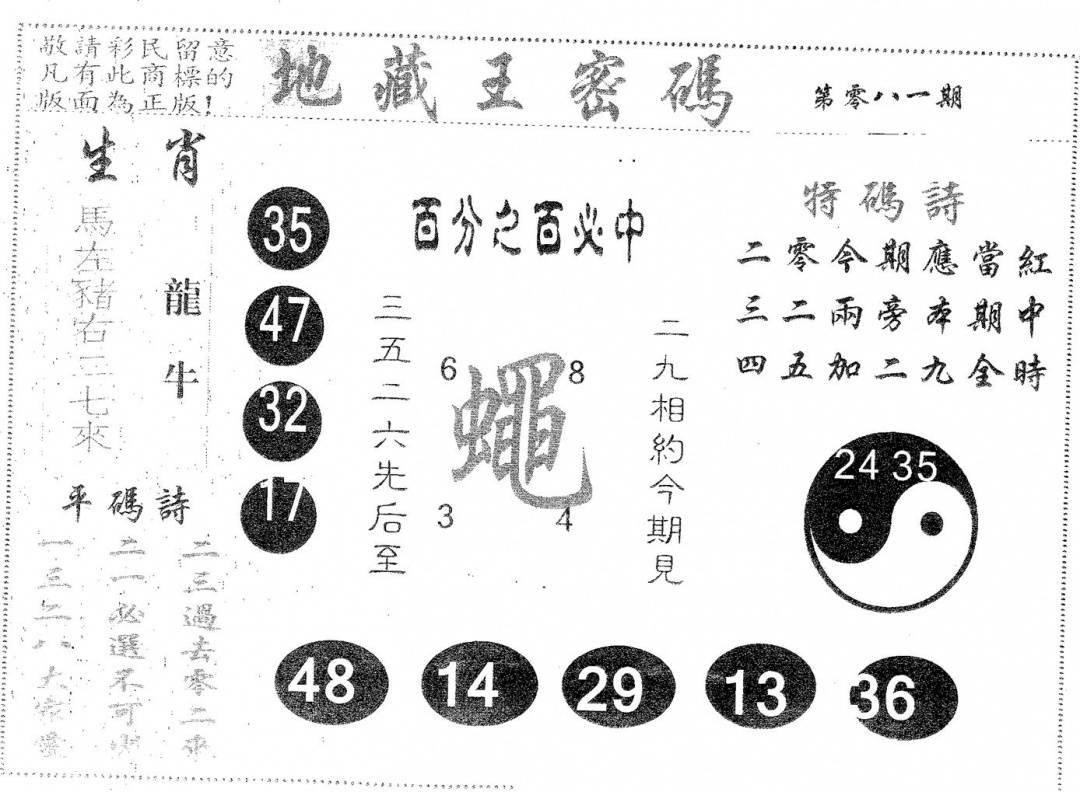 敬請彩民留意
凡有此商標的
版面為正版!
地藏王密碼
第零八一期
生肖
馬左豬右三七來
龍牛
35
47
32
17
百分之百必中
三五二六先后至
6
8
蠅
3
4
二九相約今期見
特碼詩
二零今期應當紅
三二兩旁本期中
四五加二九全時
24 35
平碼詩
二三過去零二來
二一必選不可
一三二八大家愛
48
14
29
13
36